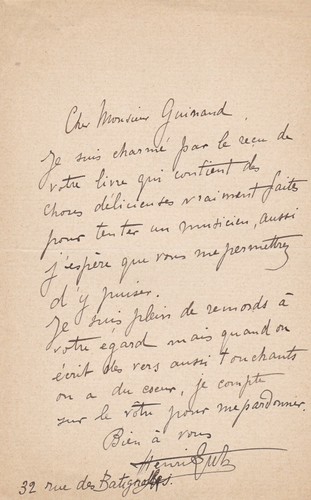 Cher Monsieur Guinaud
Je suis charmé par le reçu de
votre livre qui contient des
choses délicieuses vraiment faites
pour tenter un musicien, aussi
j'espère que vous me permettrez
d'y puiser.
Je suis plein de remords à
votre égard mais quand on
écrit des vers aussi touchants
on a du coeur, je compte
sur le vôtre pour me pardonner.
Bien à vous
Henri
32 rue des Batignolles.